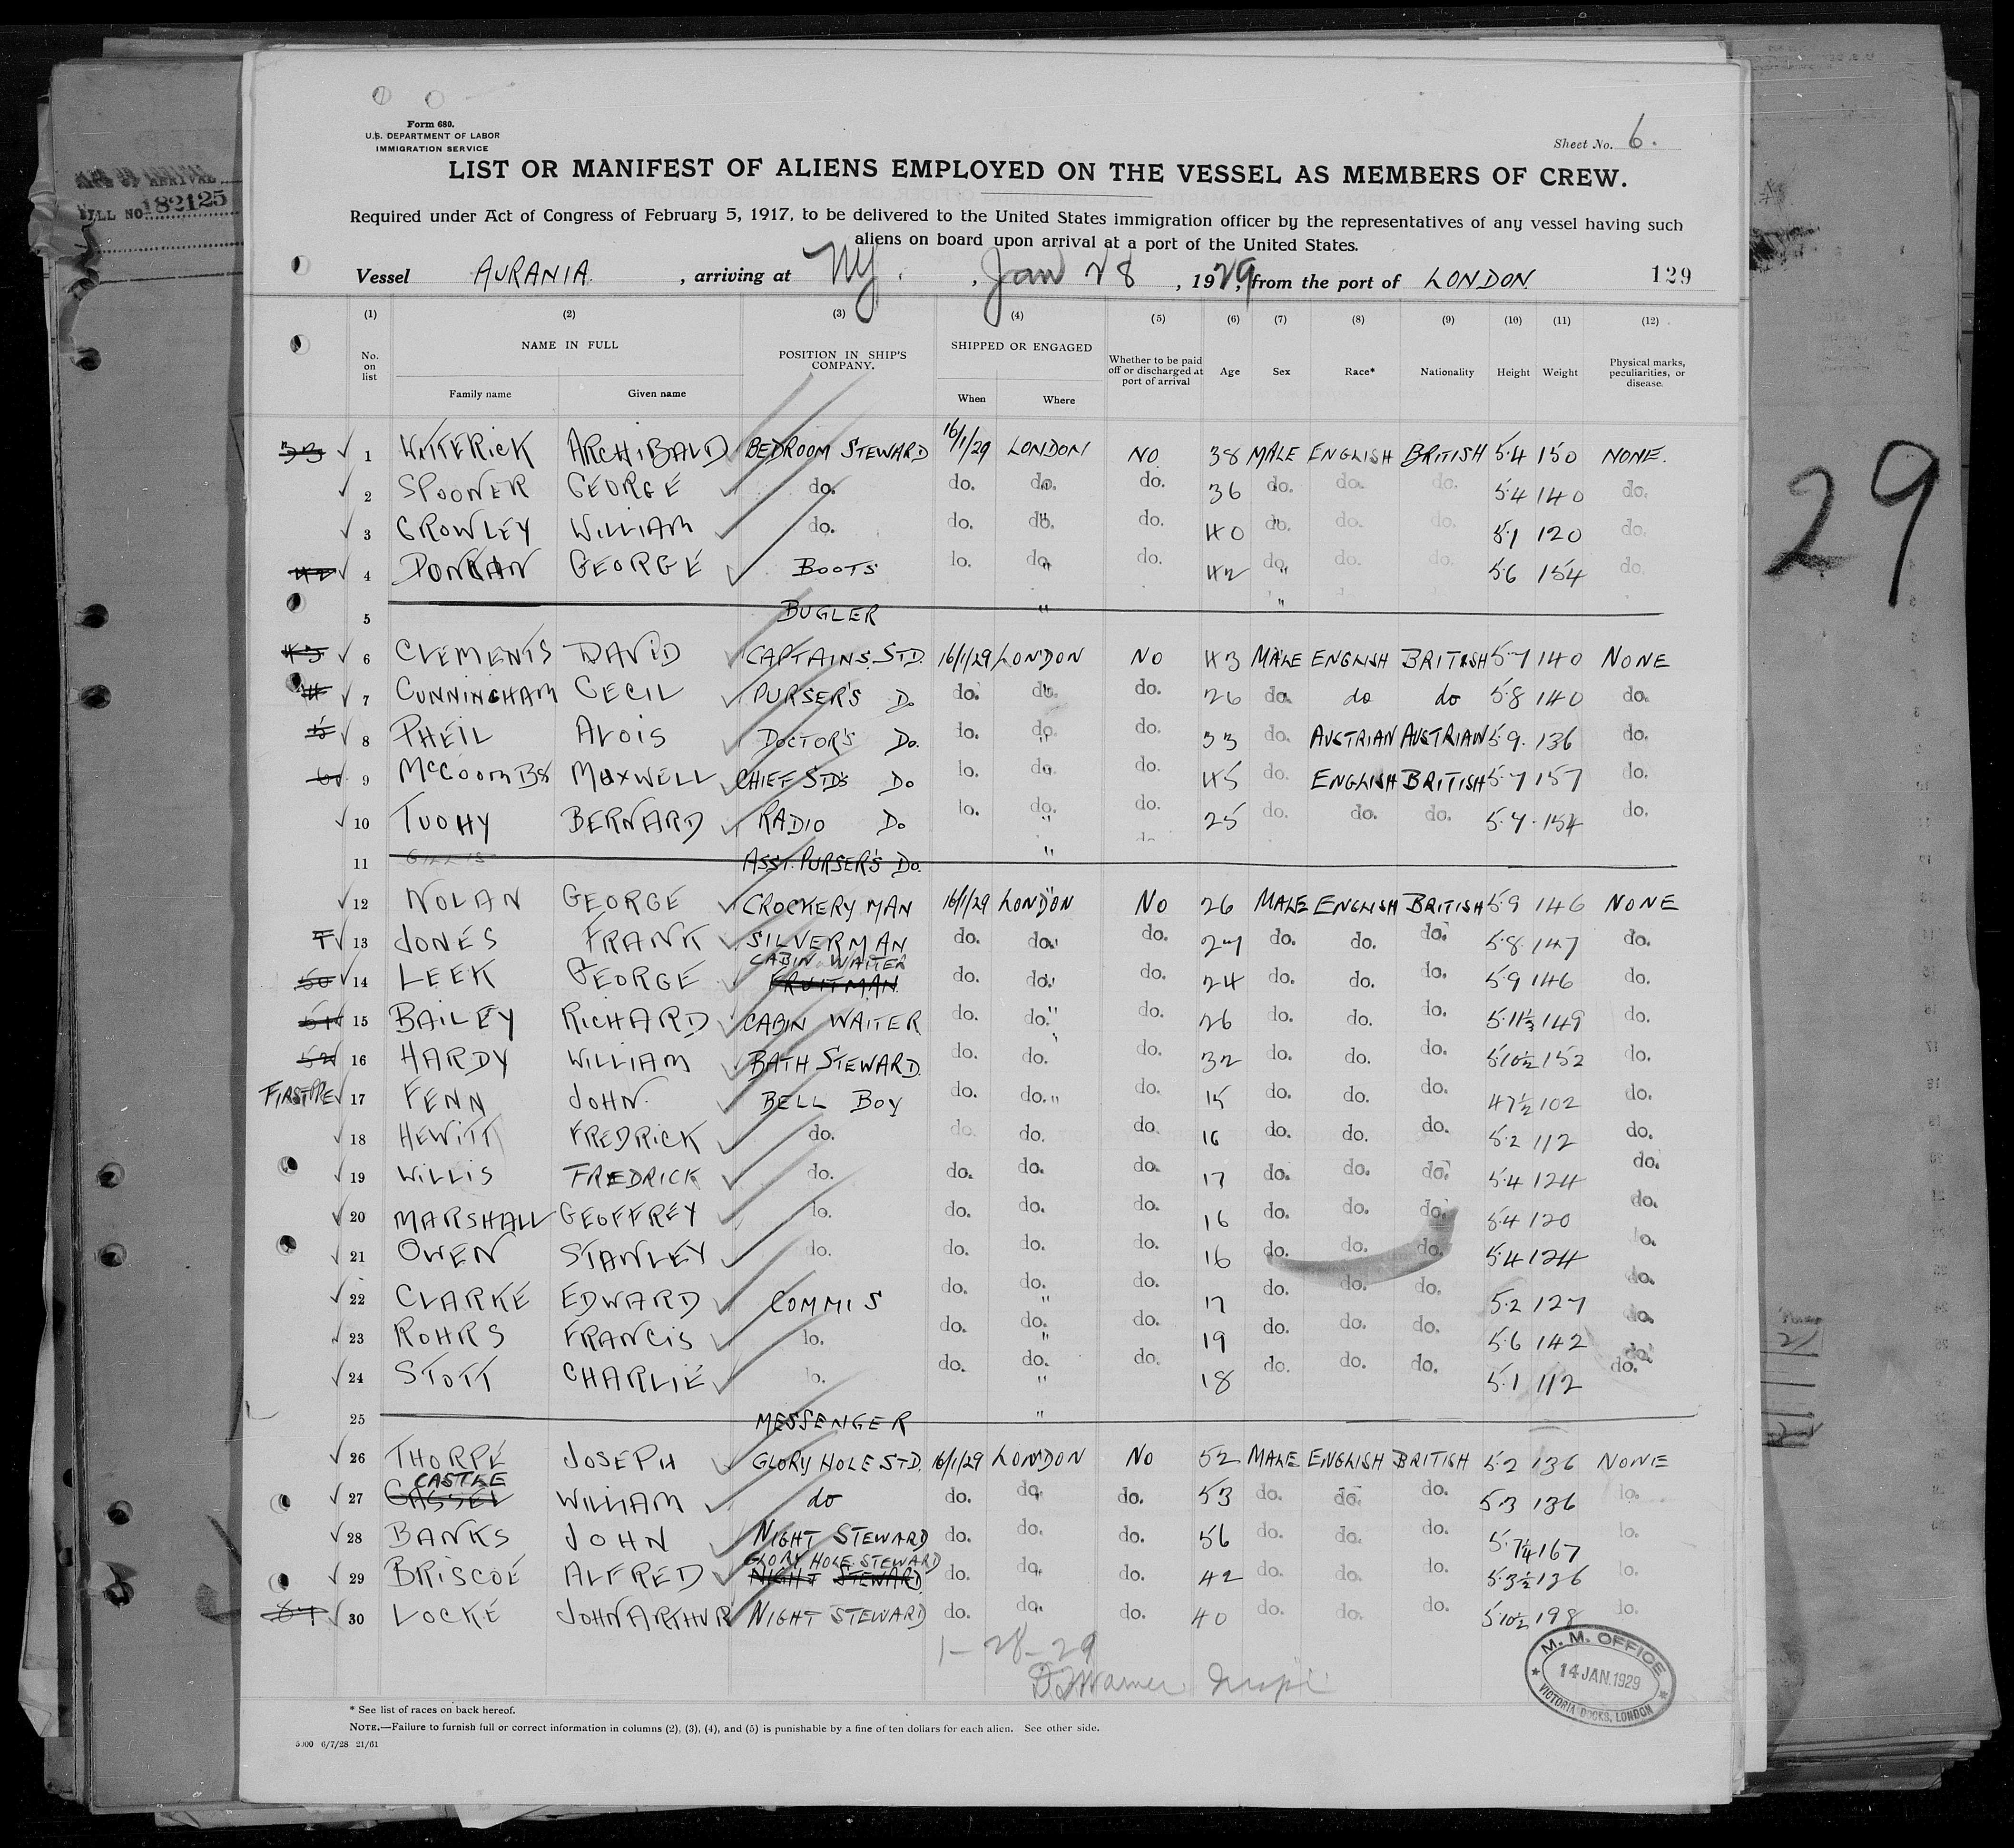 Form 680.
U.S. DEPARTMENT OF LABOR
IMMIGRATION SERVICE
Sheet No. 6.
LIST OR MANIFEST OF ALIENS EMPLOYED ON THE VESSEL AS MEMBERS OF CREW.
Required under Act of Congress of February 5, 1917, to be delivered to the United States immigration officer by the representatives of any vessel having such
aliens on board upon arrival at a port of the United States.
Vessel AURANIA, arriving at NY., Jan 28, 1929, from the port of LONDON 129
(1) (2) (3) (4) (5) (6) (7) (8) (9) (10) (11) (12)
No. on list NAME IN FULL Family name Given name POSITION IN SHIP'S COMPANY. SHIPPED OR ENGAGED When Where Whether to be paid off or discharged at port of arrival Age Sex Race* Nationality Height Weight Physical marks, peculiarities, or disease.
1 WITTERICK ARCHIBALD BEDROOM STEWARD 16/1/29 LONDON NO 38 MALE ENGLISH BRITISH 5.4 150 NONE.
2 SPOONER GEORGE do. do. do. do. 36 do. do. do. 5.4 140 do.
3 CROWLEY WILLIAM do. do. do. do. 40 do. do. do. 5.1 120 do.
4 GEORGE BOOTS do. do. do. 42 do. do. do. 5.6 154 do.
5 BUGLER "
6 CLEMENTS DAVID CAPTAINS. STD. 16/1/29 LONDON NO 43 MALE ENGLISH BRITISH 5.7 140 NONE
7 CUNNINGHAM CECIL PURSER'S Do do. do. do. 26 do. do do 5.8 140 do.
8 PHEIL ALOIS DOCTOR'S Do. do. do. do. 33 do. AUSTRIAN AUSTRIAN 5.9. 136 do.
9 McCOOMBS MAXWELL CHIEF STD'S Do do. do. do. 45 do. ENGLISH BRITISH 5.7 157 do.
10 TUOHY BERNARD RADIO Do do. do. do. 25 do. do. do. 5.7. 154 do.
11 GILLIS ASST. PURSER'S Do. "
12 NOLAN GEORGE CROCKERY MAN 16/1/29 LONDON NO 26 MALE ENGLISH BRITISH 5.9 146 NONE
13 JONES FRANK SILVERMAN do. do. do. 27 do. do. do. 5.8. 147 do.
14 LEEK GEORGE CABIN WAITER FRUITMAN do. do. do. 24 do. do. do. 5.9 146 do.
15 BAILEY RICHARD CABIN WAITER do. do. do. 26 do. do. do. 5.11½ 149 do.
16 HARDY WILLIAM BATH STEWARD do. do. do. 32 do. do. do. 5.10½ 152 do.
17 FENN JOHN. BELL BOY do. do. do. 15 do. do. do. 4.7½ 102 do.
18 HEWITT FREDRICK do. do. do. do. 16 do. do. do. 5.2 112 do.
19 WILLIS FREDRICK do. do. do. do. 17 do. do. do. 5.4 124 do.
20 MARSHALL GEOFFREY do. do. do. do. 16 do. do. do. 5.4 120 do.
21 OWEN STANLEY do. do. do. do. 16 do. do. do. 5.4 124 do.
22 CLARKE EDWARD COMMIS do. do. do. 17 do. do. do. 5.2 127 do.
23 ROHRS FRANCIS do. do. do. do. 19 do. do. do. 5.6 142 do.
24 STOTT CHARLIE do. do. do. do. 18 do. do. do. 5.1 112 do.
25 MESSENGER "
26 THORPE JOSEPH GLORY HOLE STD. 16/1/29 LONDON NO 52 MALE ENGLISH BRITISH 5.2 136 NONE
27 CASTLE CASSEL WILLIAM do do. do. do. 53 do. do. do. 5.3 136 do.
28 BANKS JOHN NIGHT STEWARD do. do. do. 56 do. do. do. 5.7¼ 167 do.
29 BRISCOE ALFRED GLORY HOLE STEWARD NIGHT STEWARD do. do. do. 42 do. do. do. 5.3½ 136 do.
30 LOCKE JOHN ARTHUR NIGHT STEWARD do. do. do. 40 do. do. do. 5.10½ 198 do.
1-28-29
M. M. OFFICE
14 JAN. 1929
VICTORIA DOCKS, LONDON
* See list of races on back hereof.
NOTE.—Failure to furnish full or correct information in columns (2), (3), (4), and (5) is punishable by a fine of ten dollars for each alien. See other side.
5000 6/7/28 21/61
182125
29